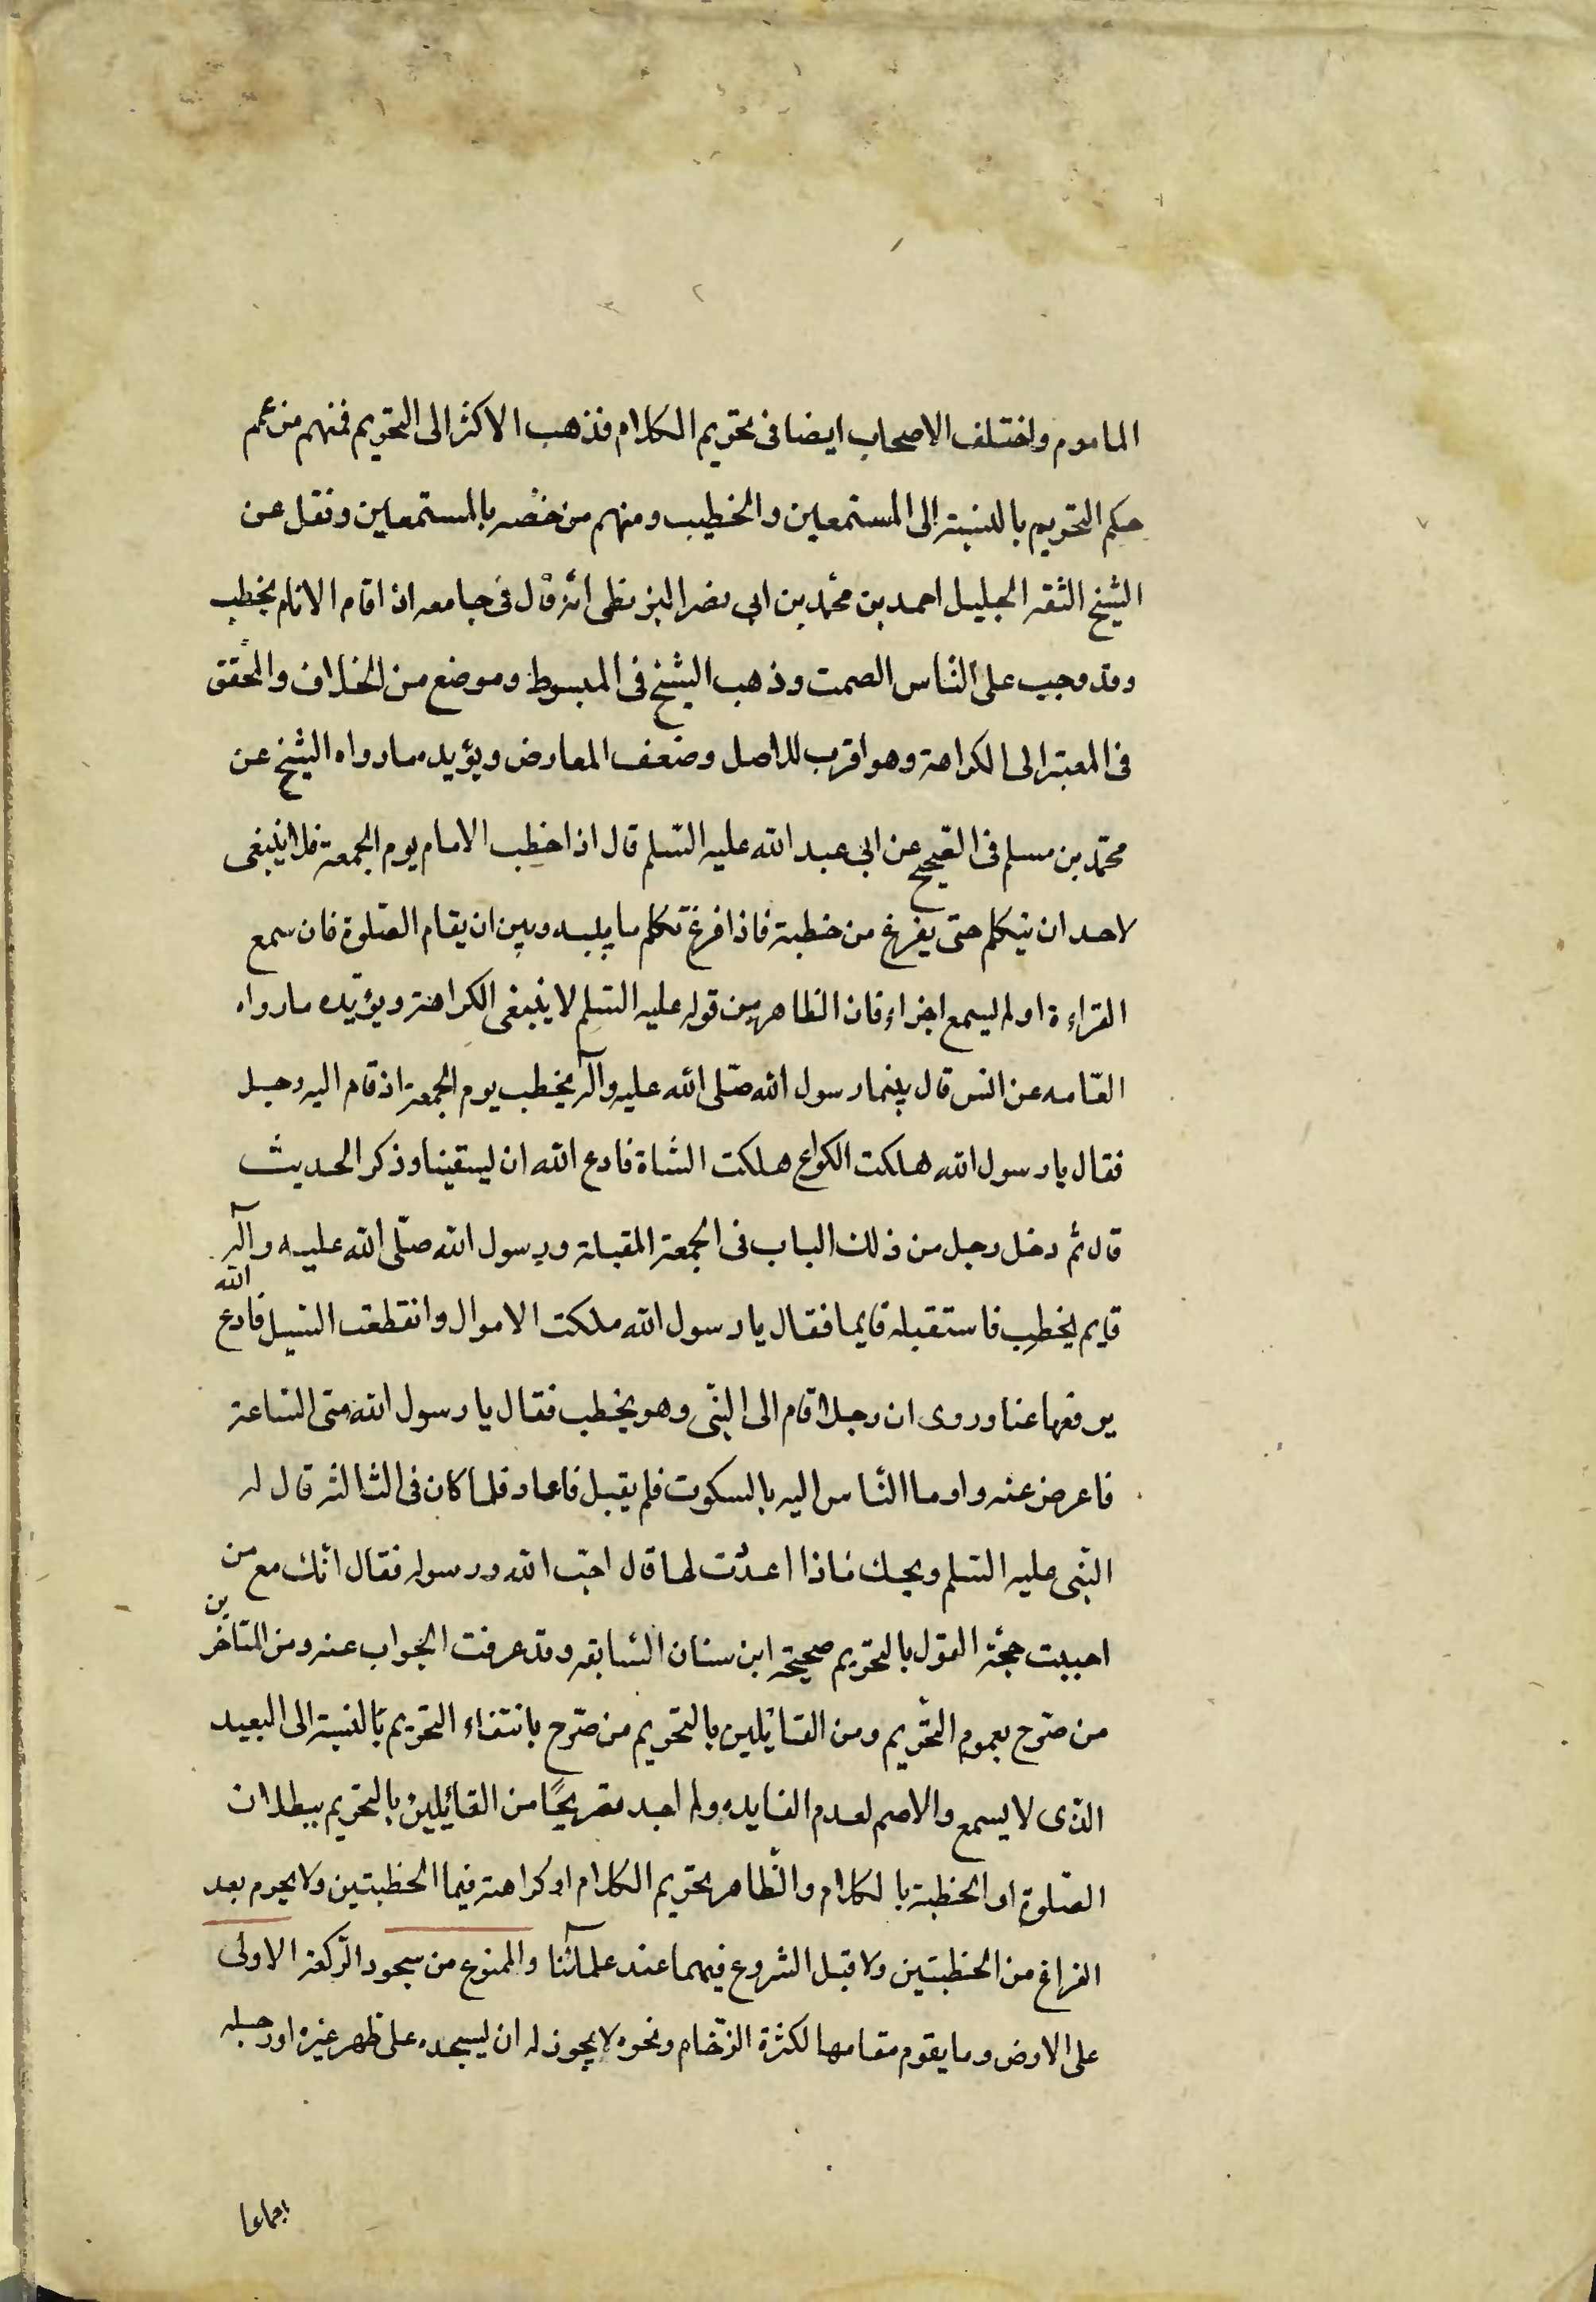 الماموم واختلف الاصحاب ايضا فى تحريم الكلام فذهب الاكثر الى التحريم فمنهم من عمم
حكم التحريم بالنسبته الى المستمعين والخطيب ومنهم من خصه بالمستمعين ونقل عن
الشيخ الثقه الجليل احمد بن محمد بن ابى نصر البزنطى انه قال فى جامعه اذا قام الامام يخطب
وقد وجب على الناس الصمت وذهب الشيخ فى المبسوط وموضع من الخلاف والمحقق
فى المعتبر الى الكراهة وهو اقرب للاصل وضعف المعارض ويؤيده ما رواه الشيخ عن
محمد بن مسلم فى الصحيح عن ابى عبد الله عليه السلم قال اذا خطب الامام يوم الجمعة فلا ينبغى
لاحد ان يتكلم حتى يفرغ من خطبة فاذا فرغ تكلم ما بينه وبين ان يقام الصلوة فان سمع
القراءة او لم يسمع اجزاه فان الظاهر من قوله عليه السلم لا ينبغى الكراهة ويؤيده ما رواه
العامه عن انس قال بينما رسول الله صلى الله عليه وآله يخطب يوم الجمعة اذ قام اليه رجل
فقال يا رسول الله هلكت الكراع هلكت الشاة فادع الله ان يسقينا وذكر الحديث
قال ثم دخل رجل من ذلك الباب فى الجمعة المقبلة ورسول الله صلى الله عليه وآله
قايم يخطب فاستقبله قايما فقال يا رسول الله هلكت الاموال وانقطعت السبيل فادع الله
يرفعها عنا وروى ان رجلا قام الى النبى وهو يخطب فقال يا رسول الله متى الساعة
فاعرض عنه واوما الناس اليه بالسكوت فلم يقبل فاعاد فلما كان فى الثالثه قال له
النبى عليه السلم ويحك ماذا اعددت لها قال احب الله ورسوله فقال انك مع من
احببت حجة القول بالتحريم صحيحة ابن سنان السابقه وقد عرفت الجواب عنه ومن المتاخرين
من صرح بعموم التحريم ومن القائلين بالتحريم من صرح بانتفاء التحريم بالنسبة الى البعيد
الذى لا يسمع والاصم لعدم الفايده ولم اجد تصريحًا من القائلين بالتحريم ببطلان
الصلوة او الخطبة بالكلام والظاهر تحريم الكلام او كراهته فيما الخطبتين ولا يحرم بعد
الفراغ من الخطبتين ولا قبل الشروع فيهما عند علمآئنا والممنوع من سجود الركعة الاولى
على الارض وما يقوم مقامها لكثرة الزحام ونحوه لا يجوز له ان يسجد على ظهر غيره او رجله
اجماعا